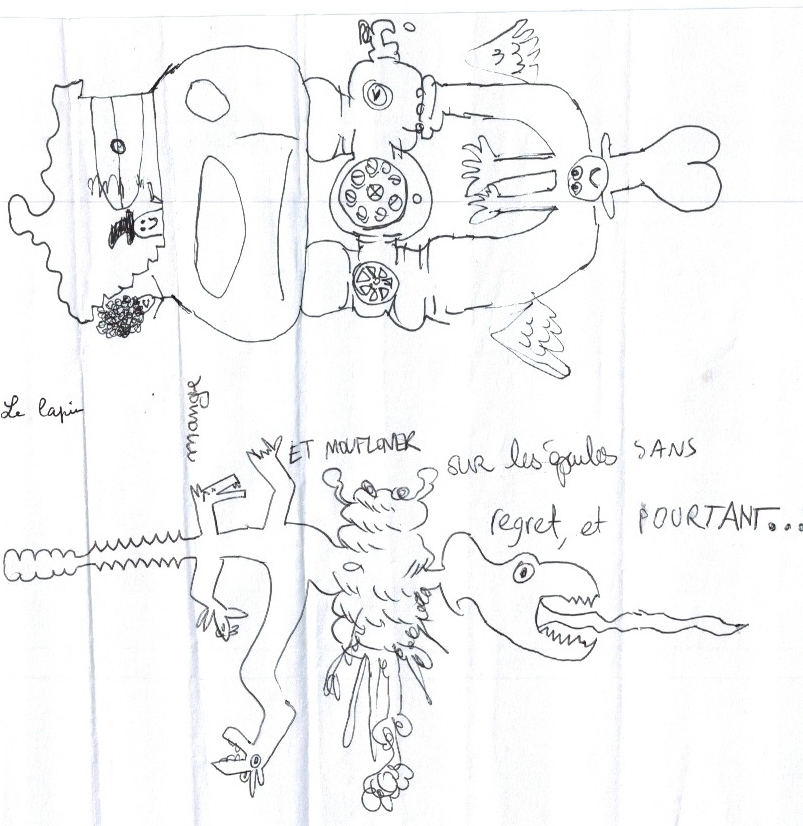 Le lapin
manger
ET MOUFLONER
SUR les épaules SANS
regret, et POURTANT...